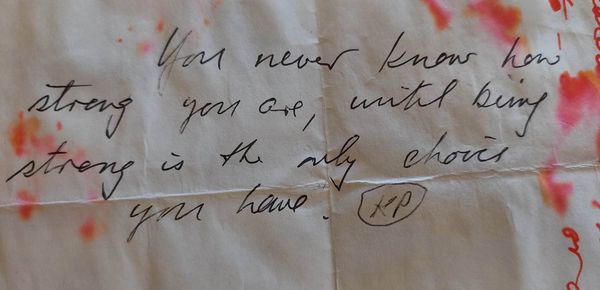 You never know how
strong you are, until being
strong is the only choice
you have.